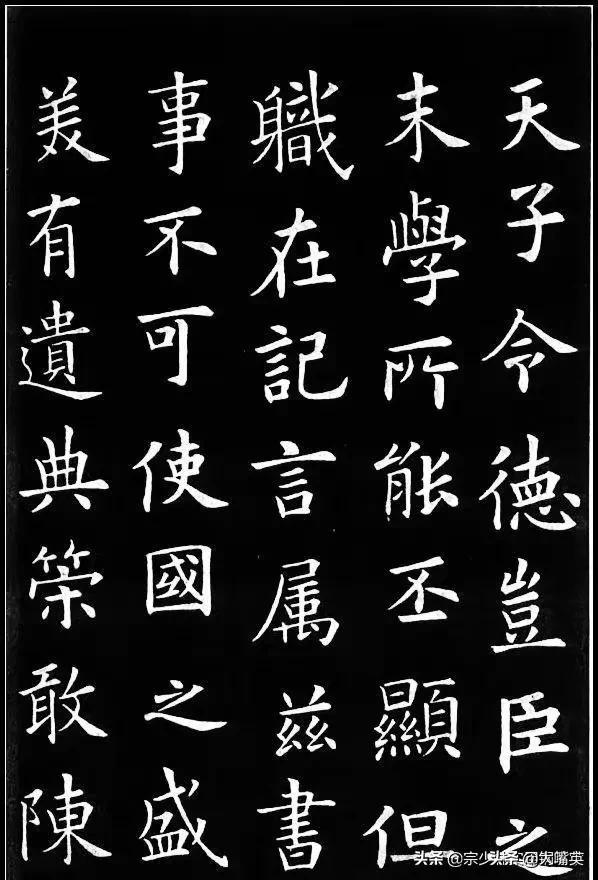 天子令德豈臣之
末學所能丕顯但
職在記言属兹書
事不可使國之盛
美有遺典策敢陳
头条@宗少
头条@铁嘴英